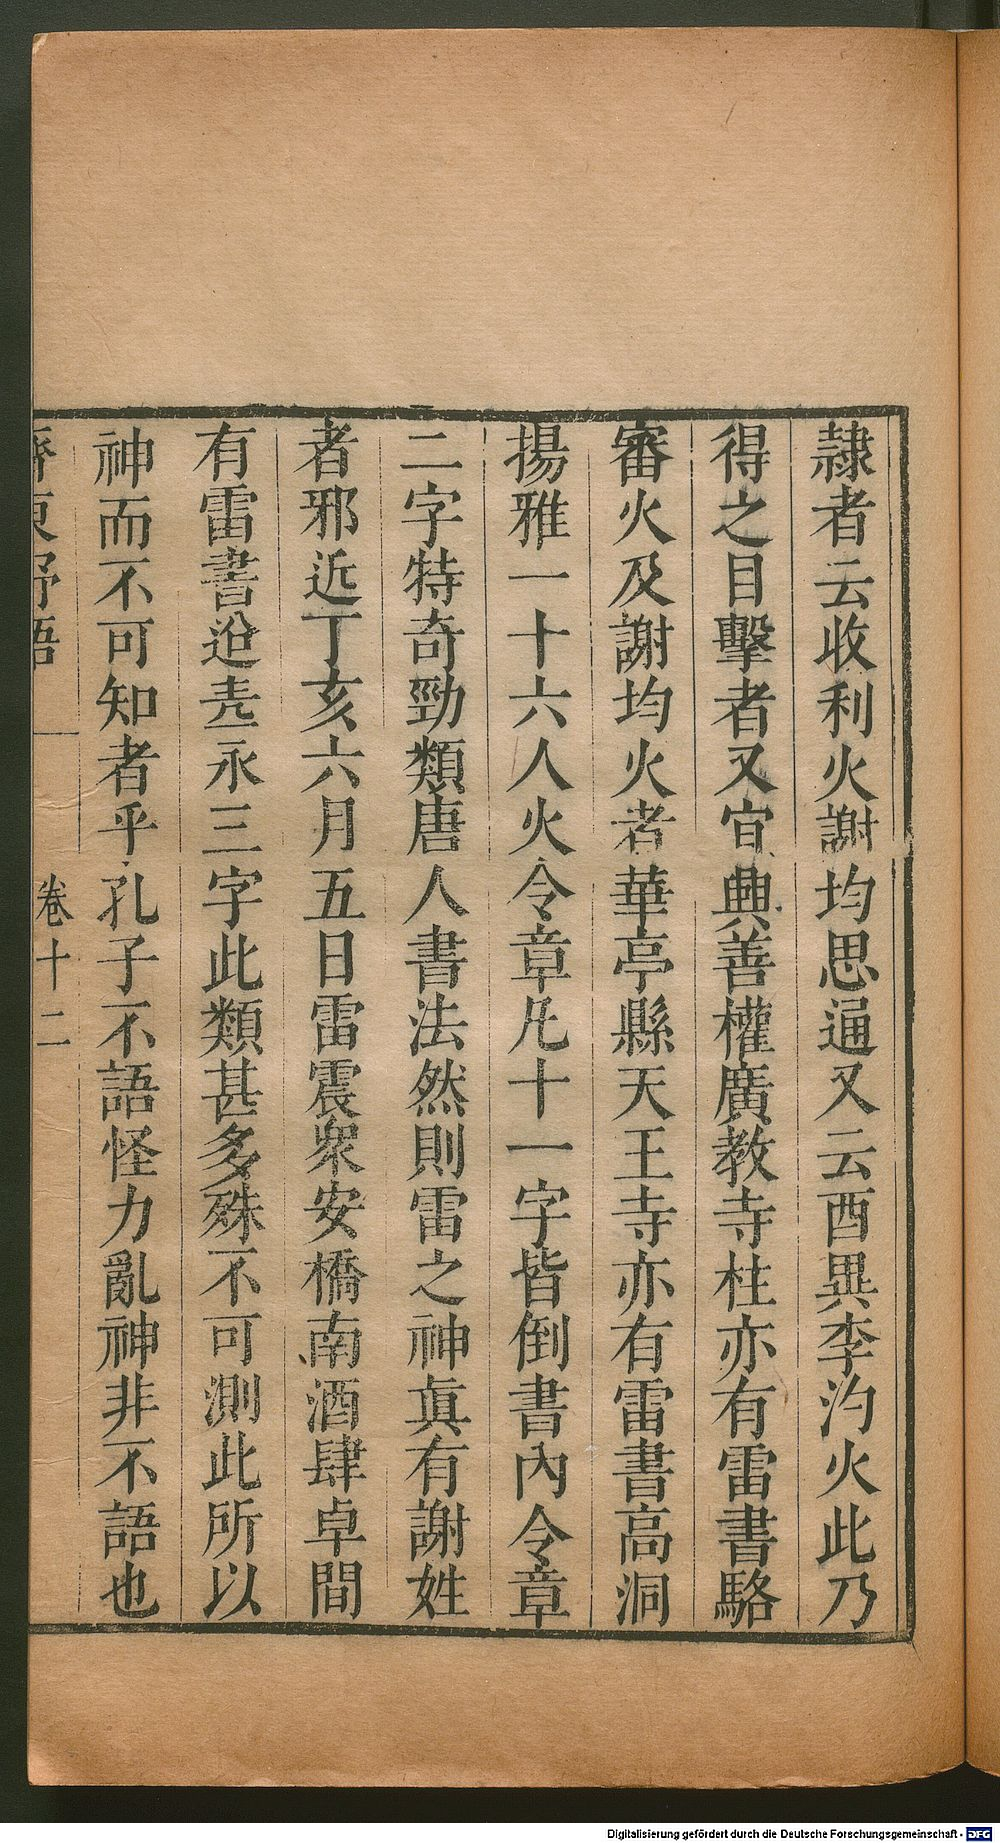 隸者云收利火謝均思通又云酉異李汋火此乃
得之目擊者又宜興善權廣教寺柱亦有雷書駱
審火及謝均火者華亭縣天王寺亦有雷書高洞
揚雅一十六人火令章凡十一字皆倒書內令章
二字特奇勁類唐人書法然則雷之神眞有謝姓
者邪近丁亥六月五日雷震衆安橋南酒肆卓間
有雷書迨𡗝永三字此類甚多殊不可測此所以
神而不可知者乎孔子不語怪力亂神非不語也
齊東野語
卷十二
Digitalisierung gefördert durch die Deutsche Forschungsgemeinschaft - DFG